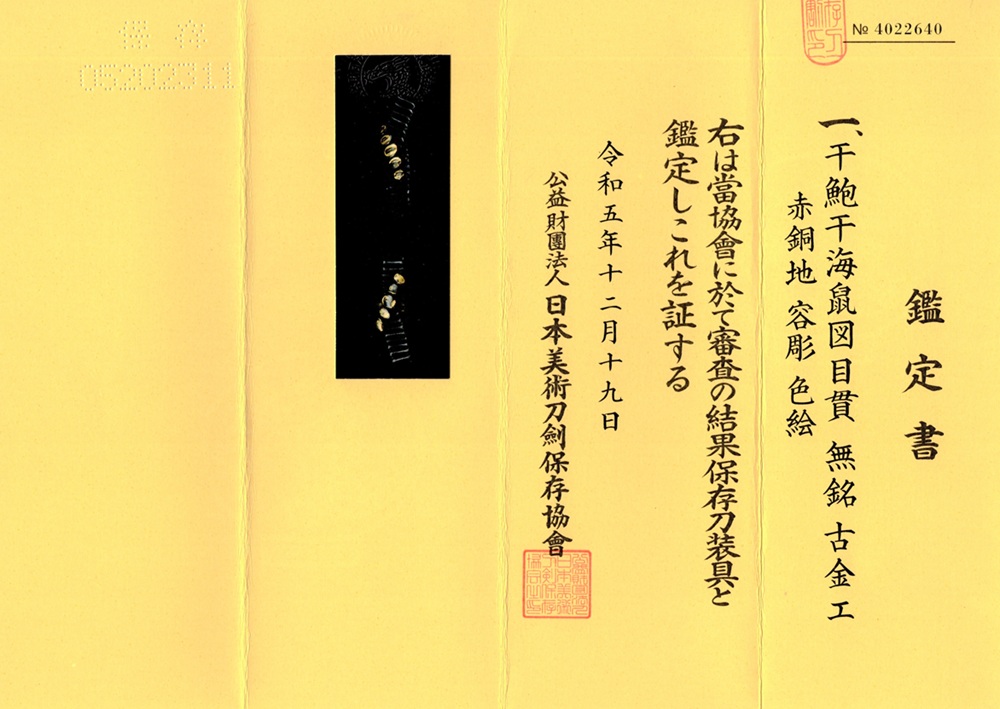 № 4022640
鑑定書
一、干鮑干海鼠図目貫 無銘 古金工
赤銅地 容彫 色絵
右は當協會に於て審査の結果保存刀装具と
鑑定しこれを証する
令和五年十二月十九日
公益財團法人 日本美術刀劍保存協會
保存
05202311